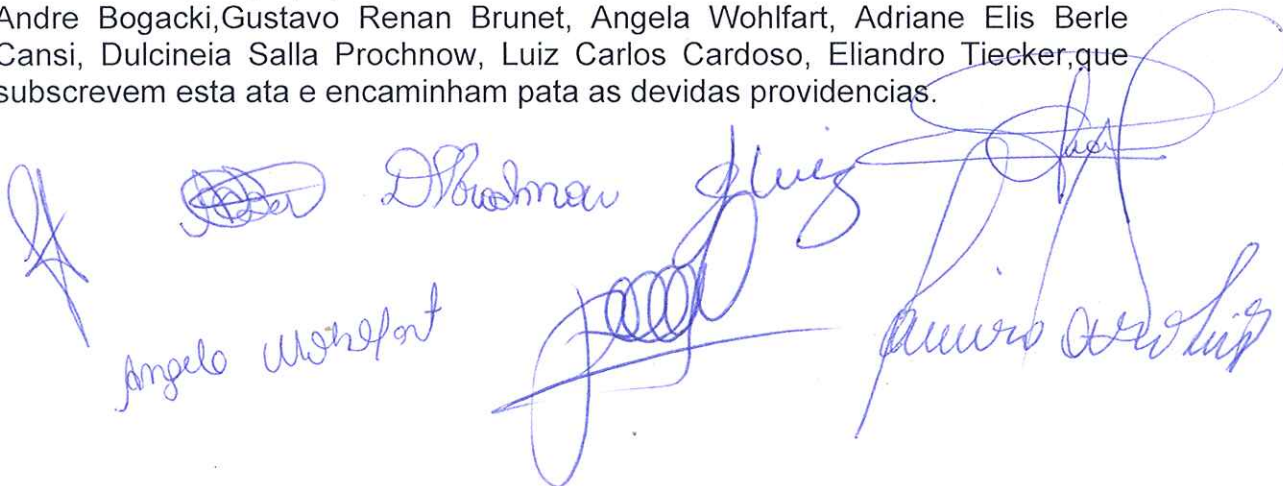 Andre Bogacki,Gustavo Renan Brunet, Angela Wohlfart, Adriane Elis Berle
Cansi, Dulcineia Salla Prochnow, Luiz Carlos Cardoso, Eliandro Tiecker,que
subscrevem esta ata e encaminham pata as devidas providencias.
DProchnow Luiz
Angela Wohlfart